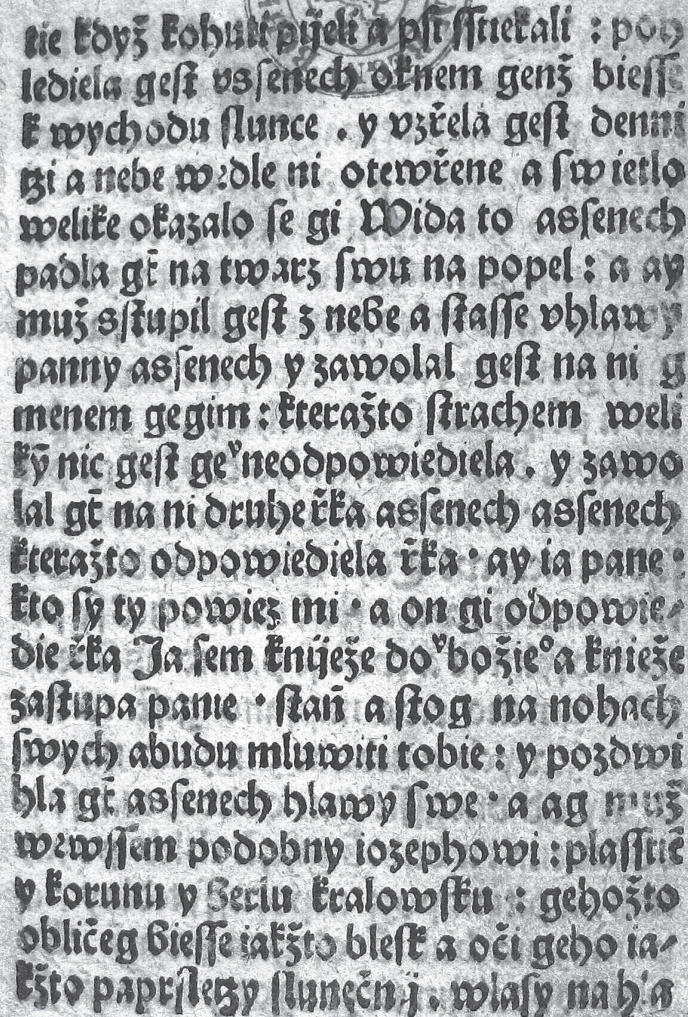 tie když kohuti pijeli a psi sstiekali : poh
lediela gest vssenech oknem genž biesse
k wychodu slunce . y vzřela gest denni
tzi a nebe wedle ni otewřene a swietlo
welike okazalo se gi Wida to assenech
padla gt̄ na twarz swu na popel : a ay
muž sstupil gest z nebe a stasse vhlawy
panny assenech y zawolal gest na ni g
menem gegim : kteražto strachem weli
kȳ nic gest geᵛneodpowiediela . y zawo
lal gt̄ na ni druhe řka assenech assenech
kteražto odpowiediela řka · ay ia pane ·
kto sy ty powiez mi · a on gi odpowie⸗
die řka Ja sem kniježe doᵛbožieᵒa knieže
zastupa panie · stan̄ a stog na nohach
swych abudu mluwiti tobie : y pozdwi
hla gt̄ assenech hlawy swe · a ag muž
wewssem podobny iozephowi : plasstiē
y korunu y berlu kralowsku : gehožto
obličeg biesse iakžto blesk a oči geho ia⸗
kžto paprsletzy slunečnij . wlasy nahla